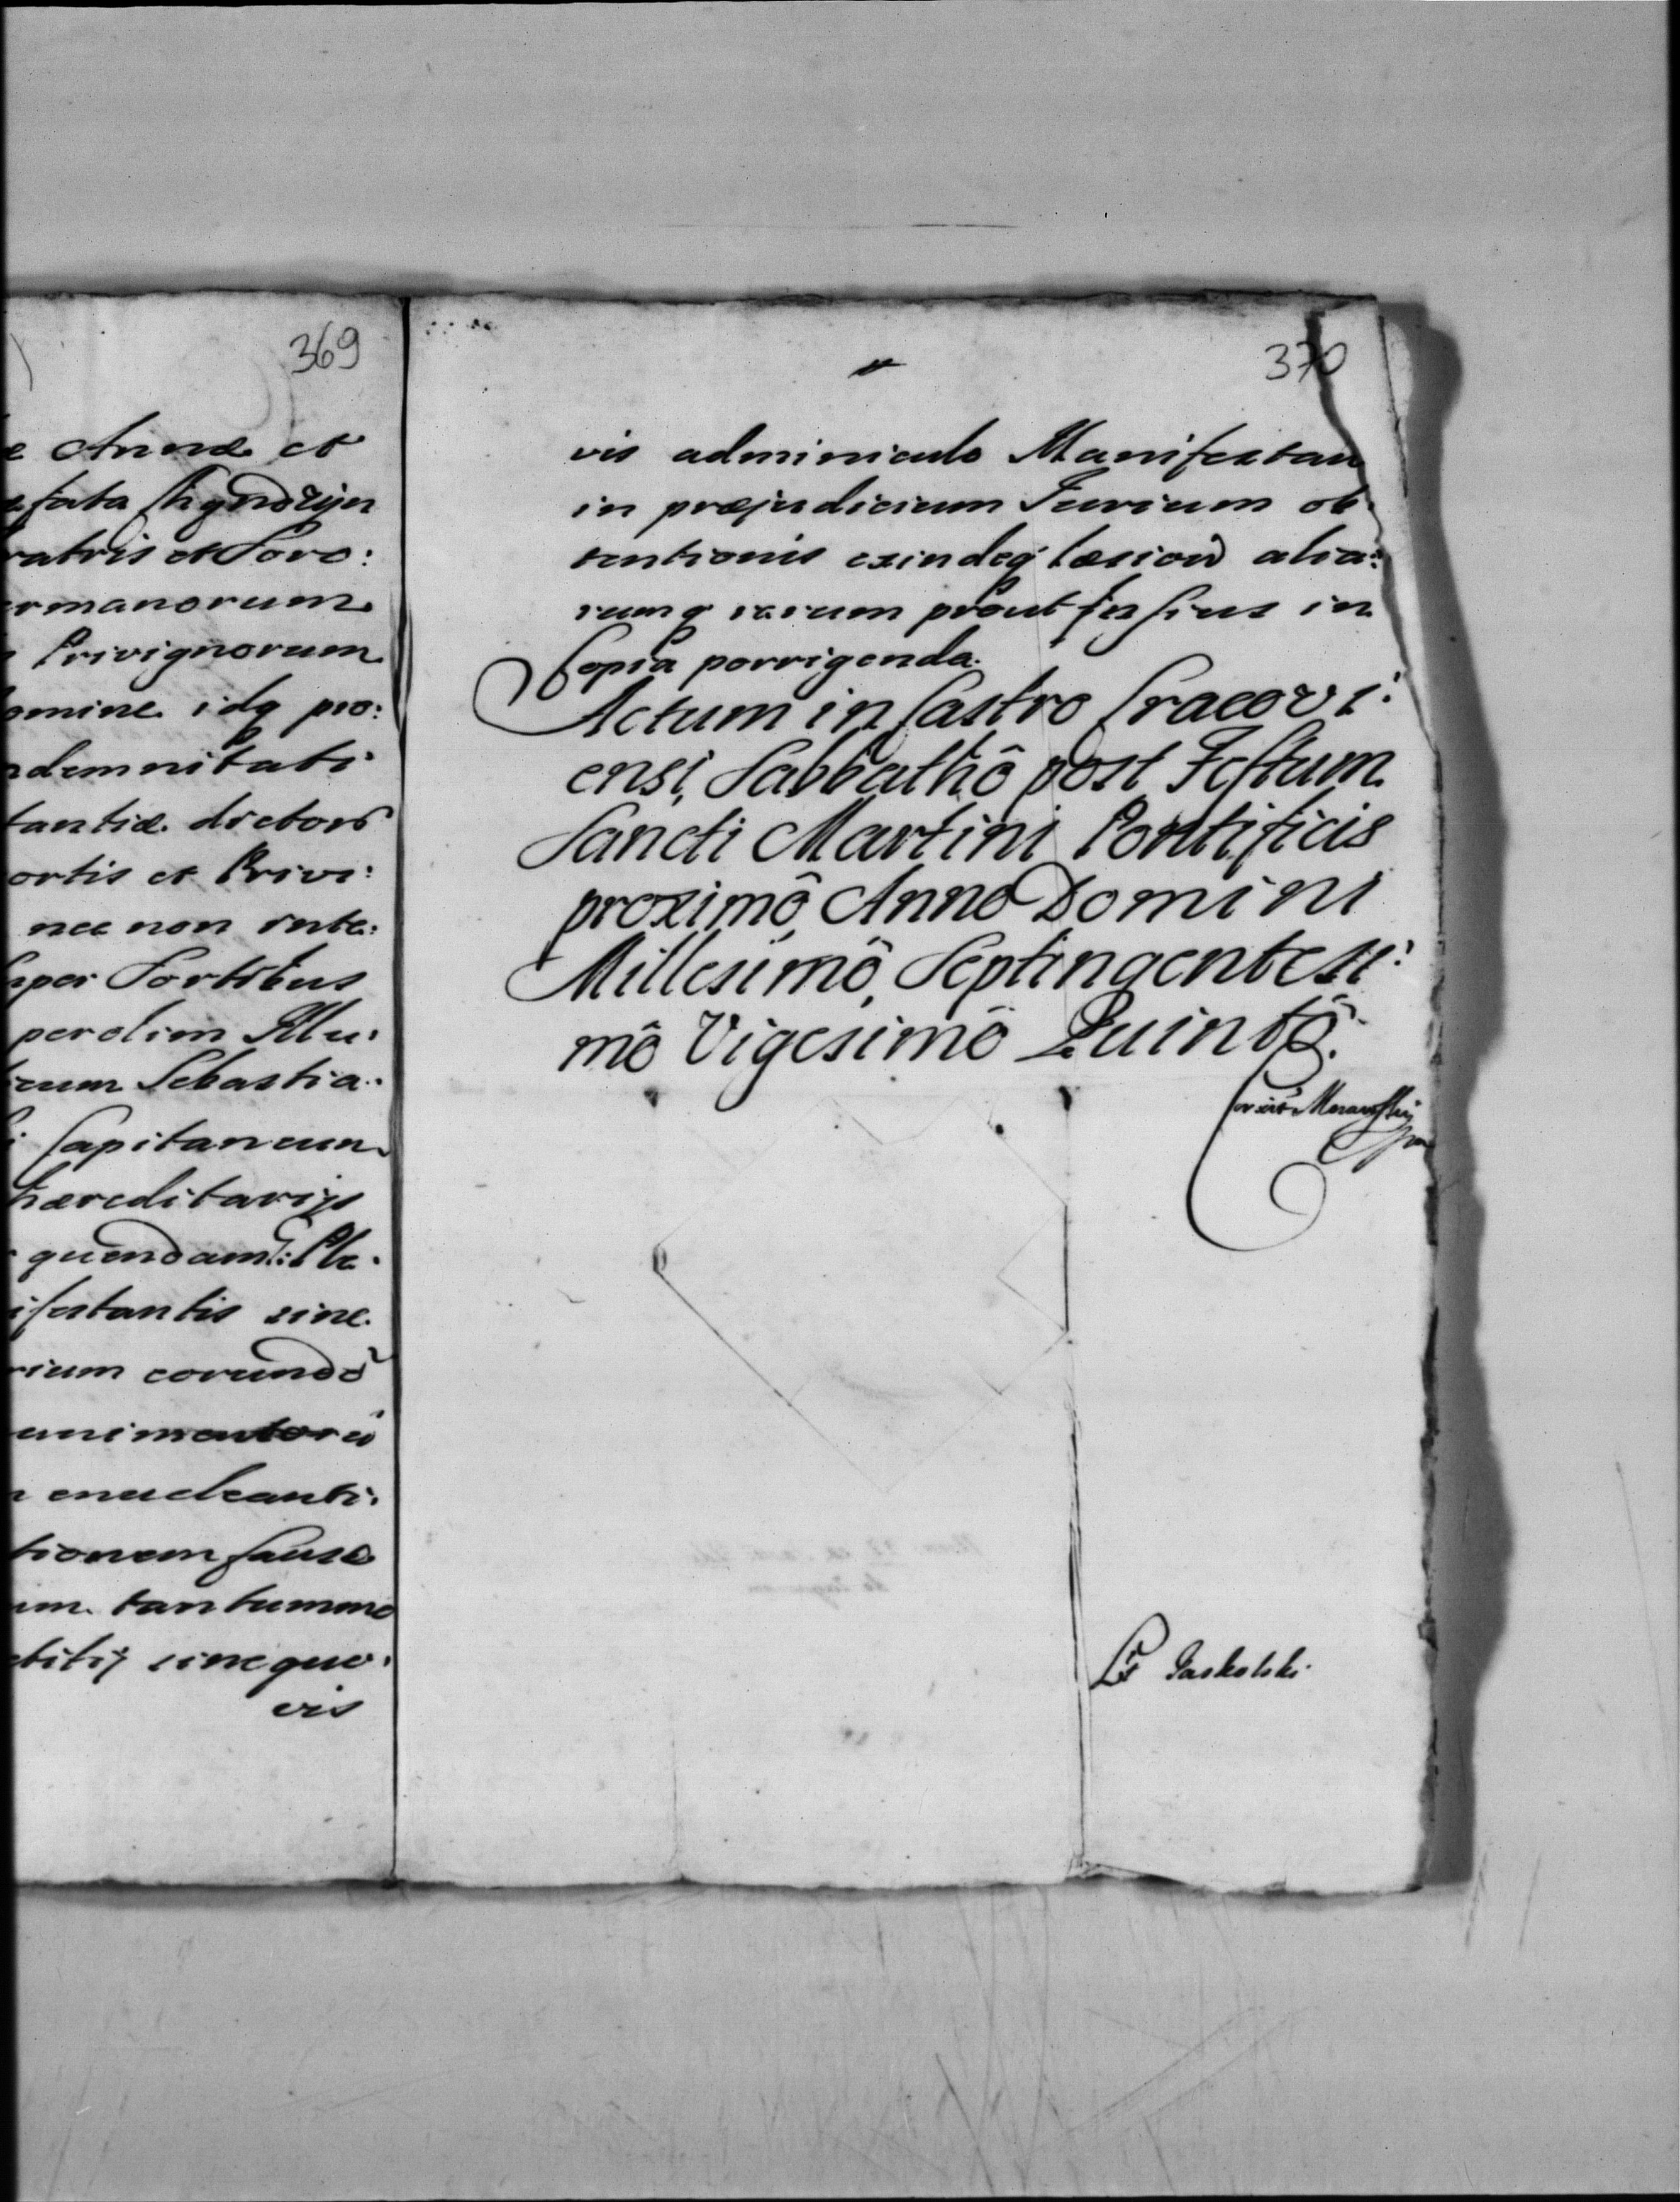 369
Annæ et
fata
ratris et Soro:
rmanorum
Privignorum
omine idq pro:
ndemnitati
tantiæ dictorũ
ortis et Privi:
nec non inte:
uper Sortibus
per olim Illu:
icum Sebastia:
Capitaneum
hæreditarijs
quendam
ifestantis sine
rium eorundẽ
unimentorũ
enucleanti:
tionem Causæ
um tantummo
btitij sine quo:
vis
370
vis adminiculo Manifestan
in præjudicium Jurium ob
tentionis exindeq læsionẽ alia:
rumq rerum prout fusius in
Copia porrigenda.
Actum in Castro Cracovi:
ensi, Sabbathô post Festum
Sancti Martini Pontificis
proximô, Annô Domini
Millesimô, Septingentesi:
mô Vigesimô Quintô.
Lr Jaskolski